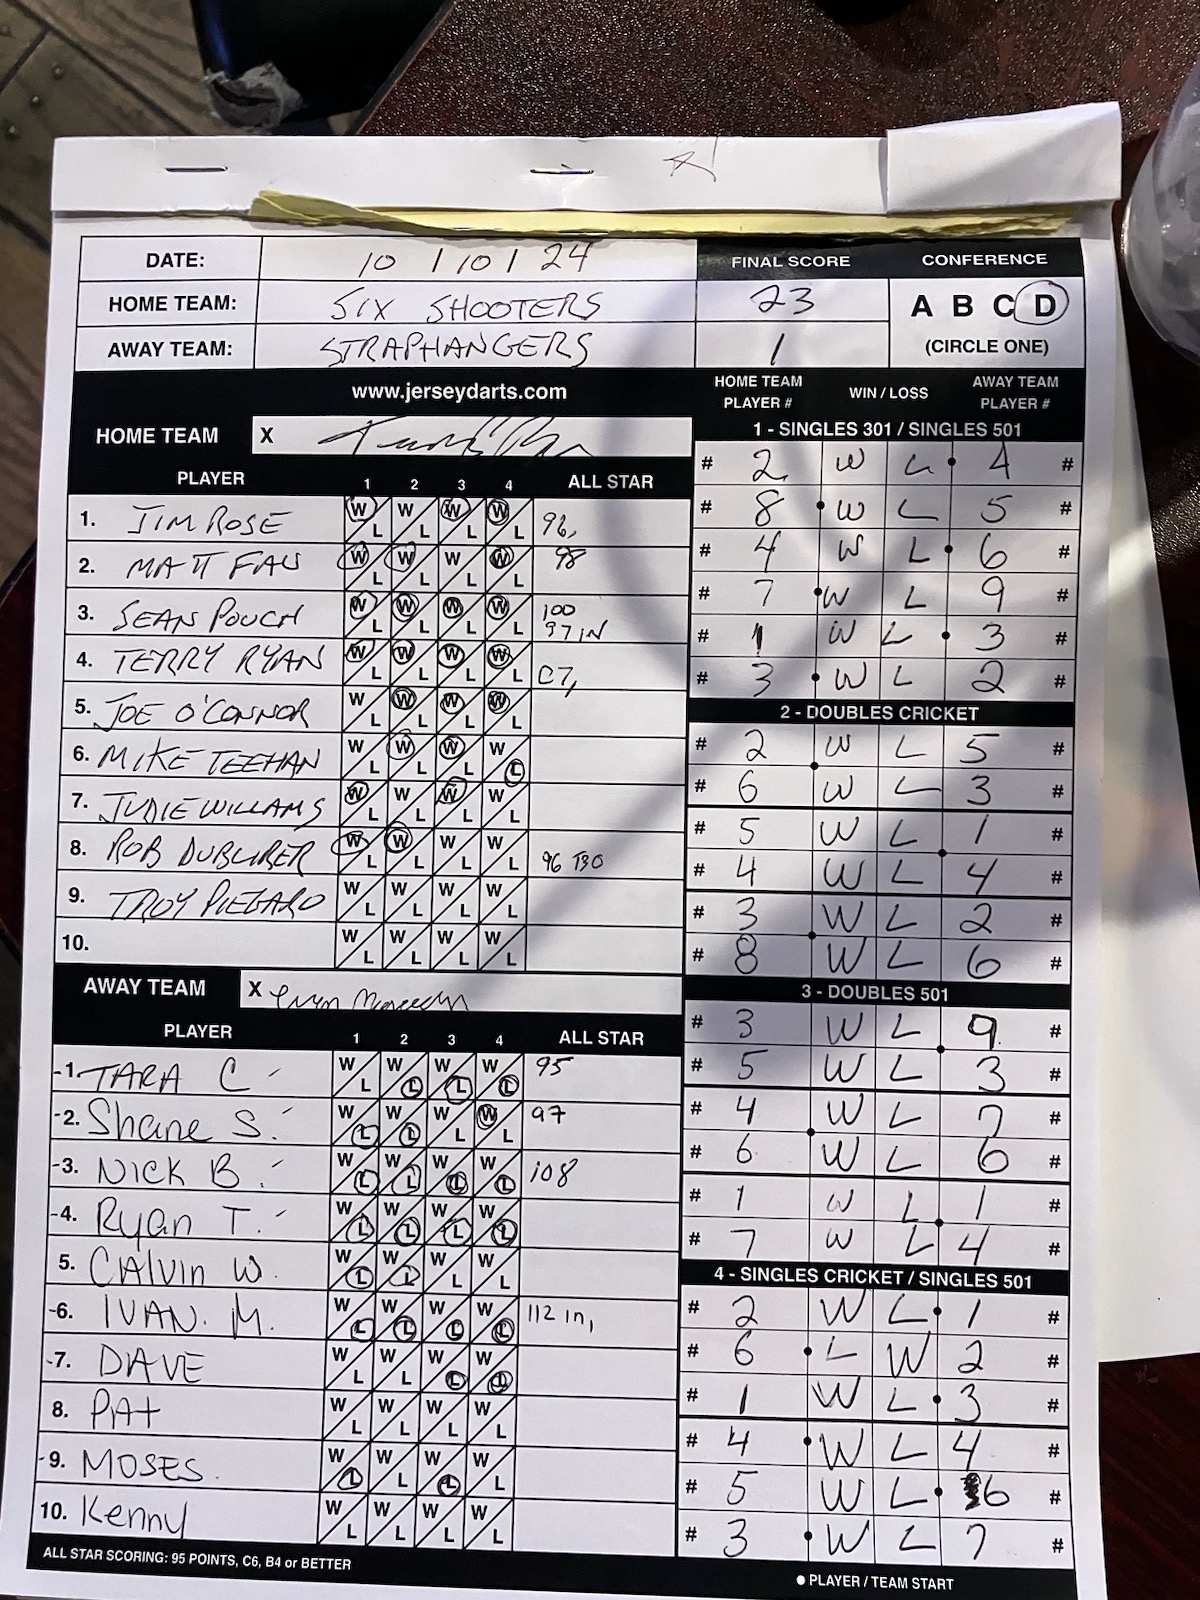 DATE: 10 / 10 / 24
HOME TEAM: SIX SHOOTERS
AWAY TEAM: STRAPHANGERS
FINAL SCORE
23
1
CONFERENCE
A B C D
(CIRCLE ONE)
www.jerseydarts.com
HOME TEAM X
PLAYER 1 2 3 4 ALL STAR
1. JIM ROSE W L W L W L W L 96,
2. MATT FAU W L W L W L W L 98
3. SEAN POUCH W L W L W L W L 100
97 IN
4. TERRY RYAN W L W L W L W L C7,
5. JOE O'CONNOR W L W L W L W L
6. MIKE TEEHAN W L W L W L W L
7. JUDIE WILLAMS W L W L W L W L
8. ROB DUBLIRER W L W L W L W L 96 T30
9. TROY W L W L W L W L
10. W L W L W L W L
AWAY TEAM X
PLAYER 1 2 3 4 ALL STAR
-1. TARA C W L W L W L W L 95
-2. Shane S. W L W L W L W L 97
-3. NICK B. W L W L W L W L 108
-4. Ryan T. W L W L W L W L
5. CAlvin W. W L W L W L W L
-6. IVAN. M. W L W L W L W L 112 in,
-7. DAVE W L W L W L W L
8. PAt W L W L W L W L
-9. MOSES. W L W L W L W L
10. Kenny W L W L W L W L
ALL STAR SCORING: 95 POINTS, C6, B4 or BETTER
HOME TEAM PLAYER # WIN / LOSS AWAY TEAM PLAYER #
1 - SINGLES 301 / SINGLES 501
# 2 W L 4 #
# 8 W L 5 #
# 4 W L 6 #
# 7 W L 9 #
# 1 W L 3 #
# 3 W L 2 #
2 - DOUBLES CRICKET
# 2 W L 5 #
# 6 W L 3 #
# 5 W L 1 #
# 4 W L 4 #
# 3 W L 2 #
# 8 W L 6 #
3 - DOUBLES 501
# 3 W L 9 #
# 5 W L 3 #
# 4 W L 7 #
# 6 W L 6 #
# 1 W L 1 #
# 7 W L 4 #
4 - SINGLES CRICKET / SINGLES 501
# 2 W L 1 #
# 6 L W 2 #
# 1 W L 3 #
# 4 W L 4 #
# 5 W L 6 #
# 3 W L 7 #
● PLAYER / TEAM START